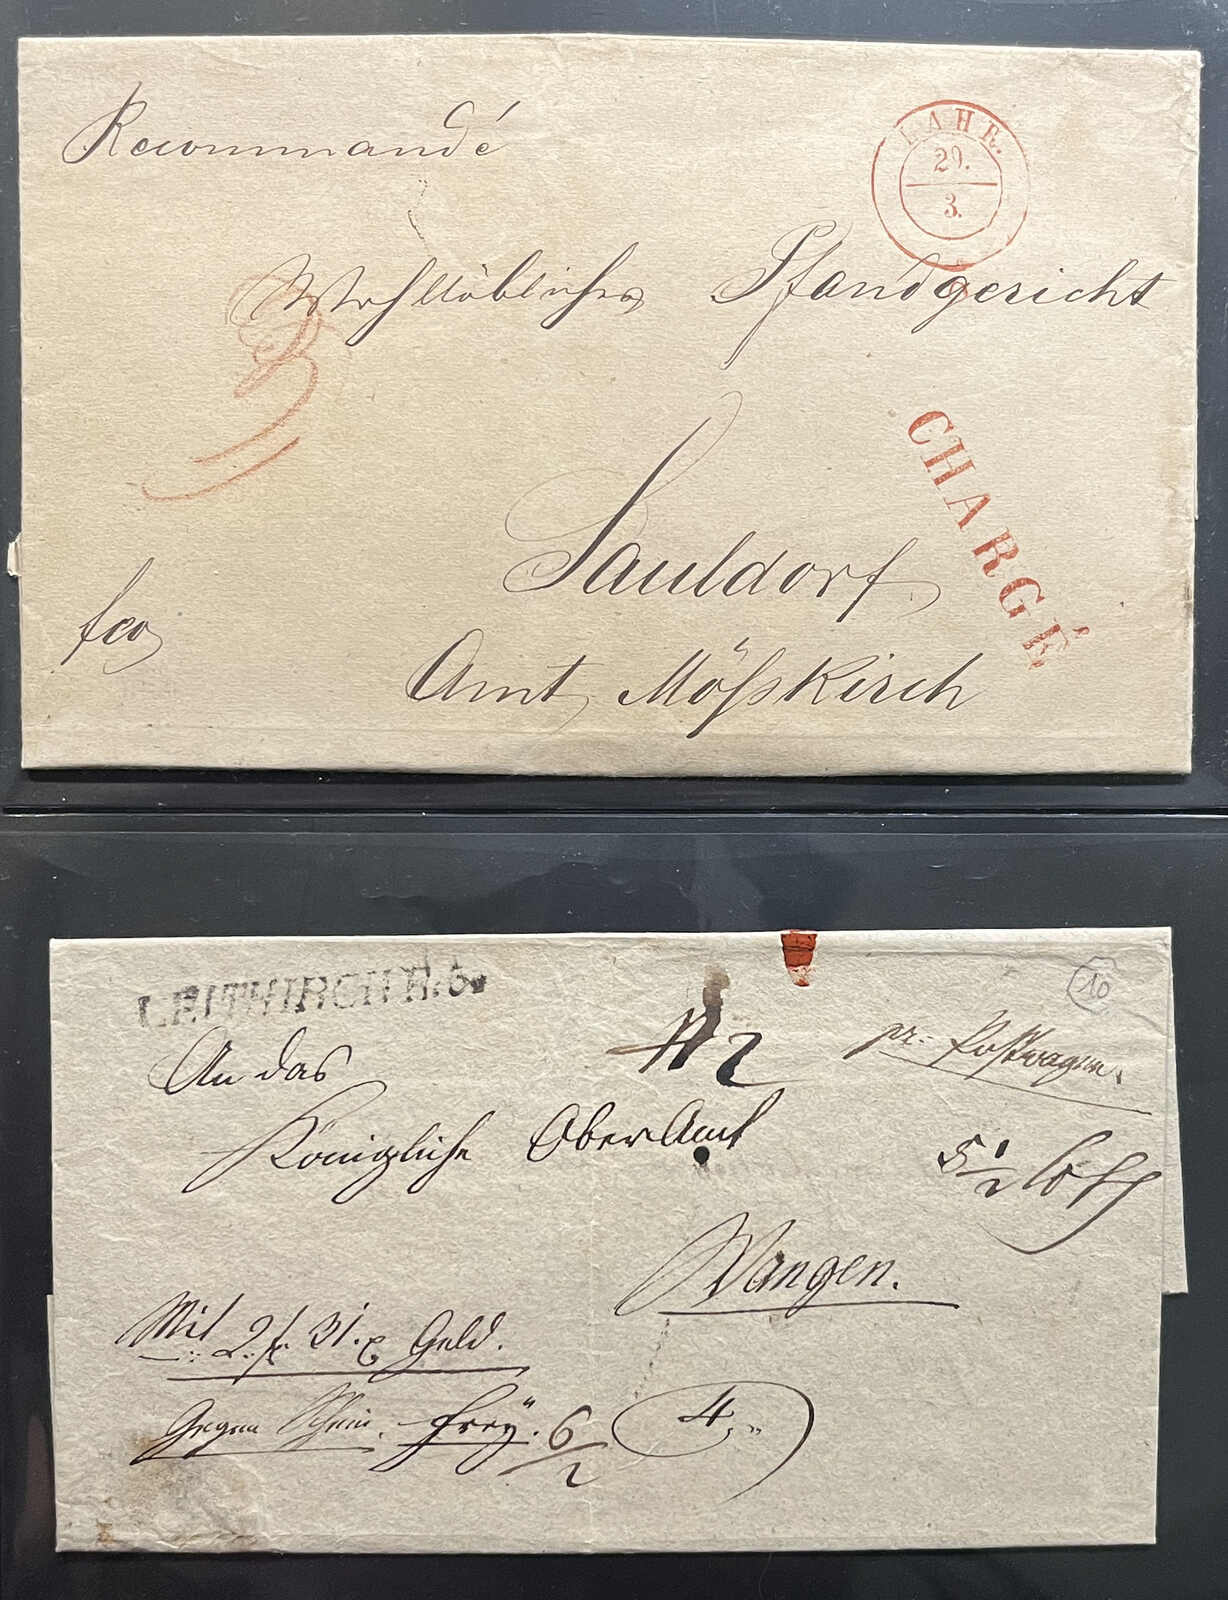 Recommandé
LAHR.
20.
3.
Wohllöbliches Pfandgericht
CHARGÉ
Sauldorf
fco
Amt Mößkirch
LEUTKIRCH
10
An das
2
pr. Postwagen.
Königliche OberAmt
5 1/2 loth
Wangen.
Mit 2 f. 31. x Geld.
Gegen Schein. frey. 6/2
4